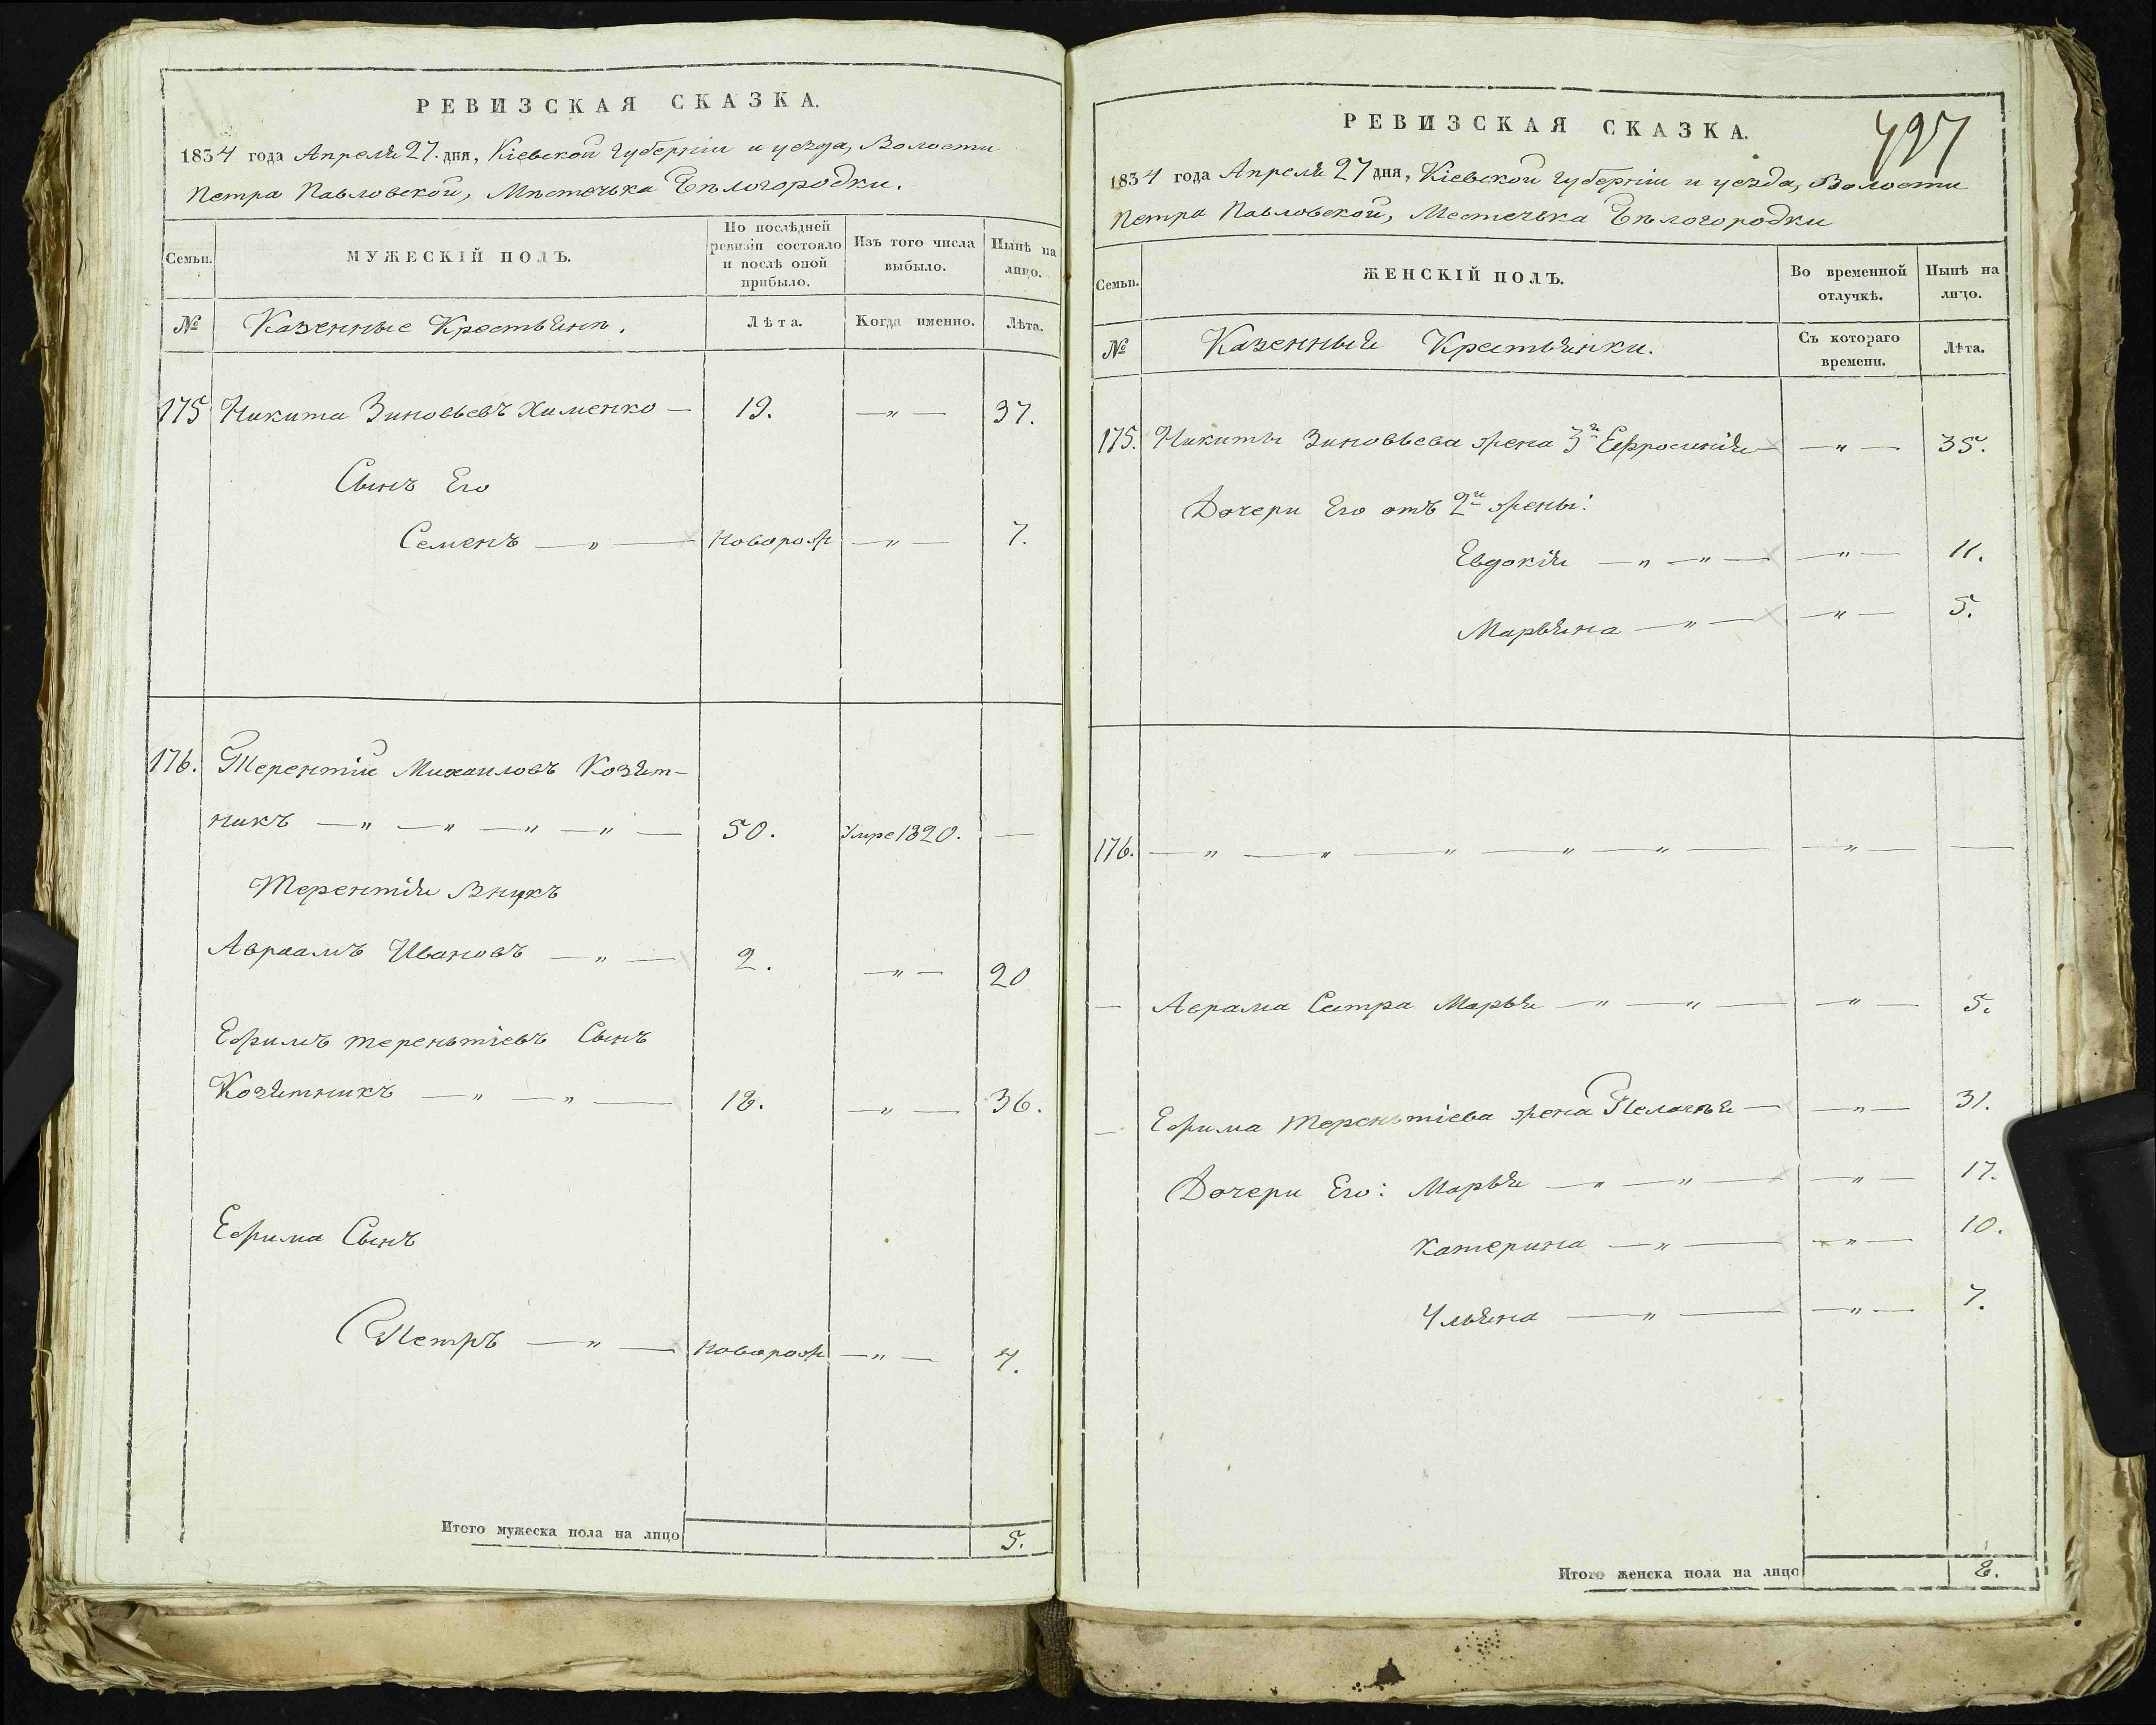 РЕВИЗСКАЯ СКАЗКА.
1834 года Апреля 27. дня, Кіевской губерніи и уезда, Волости
Петра Павловской, Мѣстечька Бѣлогородки.
Семьи.
МУЖЕСКІЙ ПОЛЪ.
По послѣдней ревизіи состояло и послѣ оной прибыло.
Изъ того числа выбыло.
Нынѣ на лицо.
№
Казенные Крестьянѣ.
Лѣта.
Когда именно.
Лѣта.
175 Никита Зиновьевъ Хименко — 19. — " — 37.
Сынъ Его
Семенъ — " — новорож — " — 7.
176. Терентіи Михаиловъ Козят-
никъ — " — " — " — " — 50. Умре 1820. —
Терентія Внукъ
Авраамъ Ивановъ — " — 2. — " — 20
Ефримъ терентьіевъ Сынъ
Козятникъ — " — " — 18. — " — 36.
Ефрима Сынъ
Петръ — " — новорож — " — 4.
Итого мужеска пола на лицо 5.
РЕВИЗСКАЯ СКАЗКА.
497
1834 года Апреля 27 дня, Кіевской губерніи и уезда, Волости
Петра Павловской, Местечька Бѣлогородки
Семьи.
ЖЕНСКІЙ ПОЛЪ.
Во временной отлучкѣ.
Нынѣ на лицо.
№
Казенныя Крестьянки.
Съ котораго времени.
Лѣта.
175. Никиты Зиновьева жена 3я Ефросинія — " — 35.
Дочери Его отъ 2й жены:
Евдокія — " — " — — " — 11.
Марьяна — " — — " — 5.
176. — " — " — " — " — " — — " — —
— Аврама Сестра Марья — " — " — — " — 5.
— Ефрима Терентьіева жена Пелагѣя — — " — 31.
Дочери Его: Марья — " — " — — " — 17.
Катерина — " — — " — 10.
Ульяна — " — — " — 7.
Итого женска пола на лицо 8.